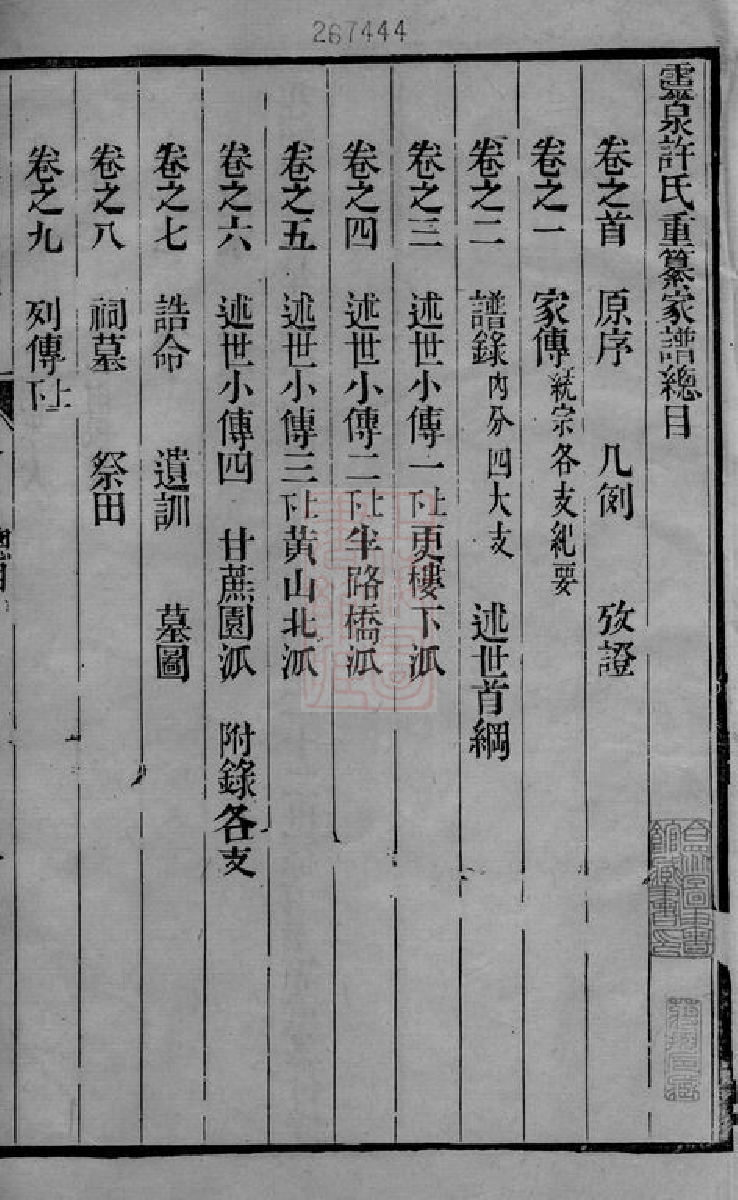 267444
靈泉許氏重纂家譜總目
卷之首 原序 凡例 攷證
卷之一 家傳 統宗各支紀要
卷之二 譜錄 內分四大支 述世首綱
卷之三 述世小傳一 上下 更樓下派
卷之四 述世小傳二 上下 半路橋派
卷之五 述世小傳三 上下 黃山北派
卷之六 述世小傳四 甘蔗園派 附錄各支
卷之七 誥命 遺訓 墓圖
卷之八 祠墓 祭田
卷之九 列傳 上下
總目